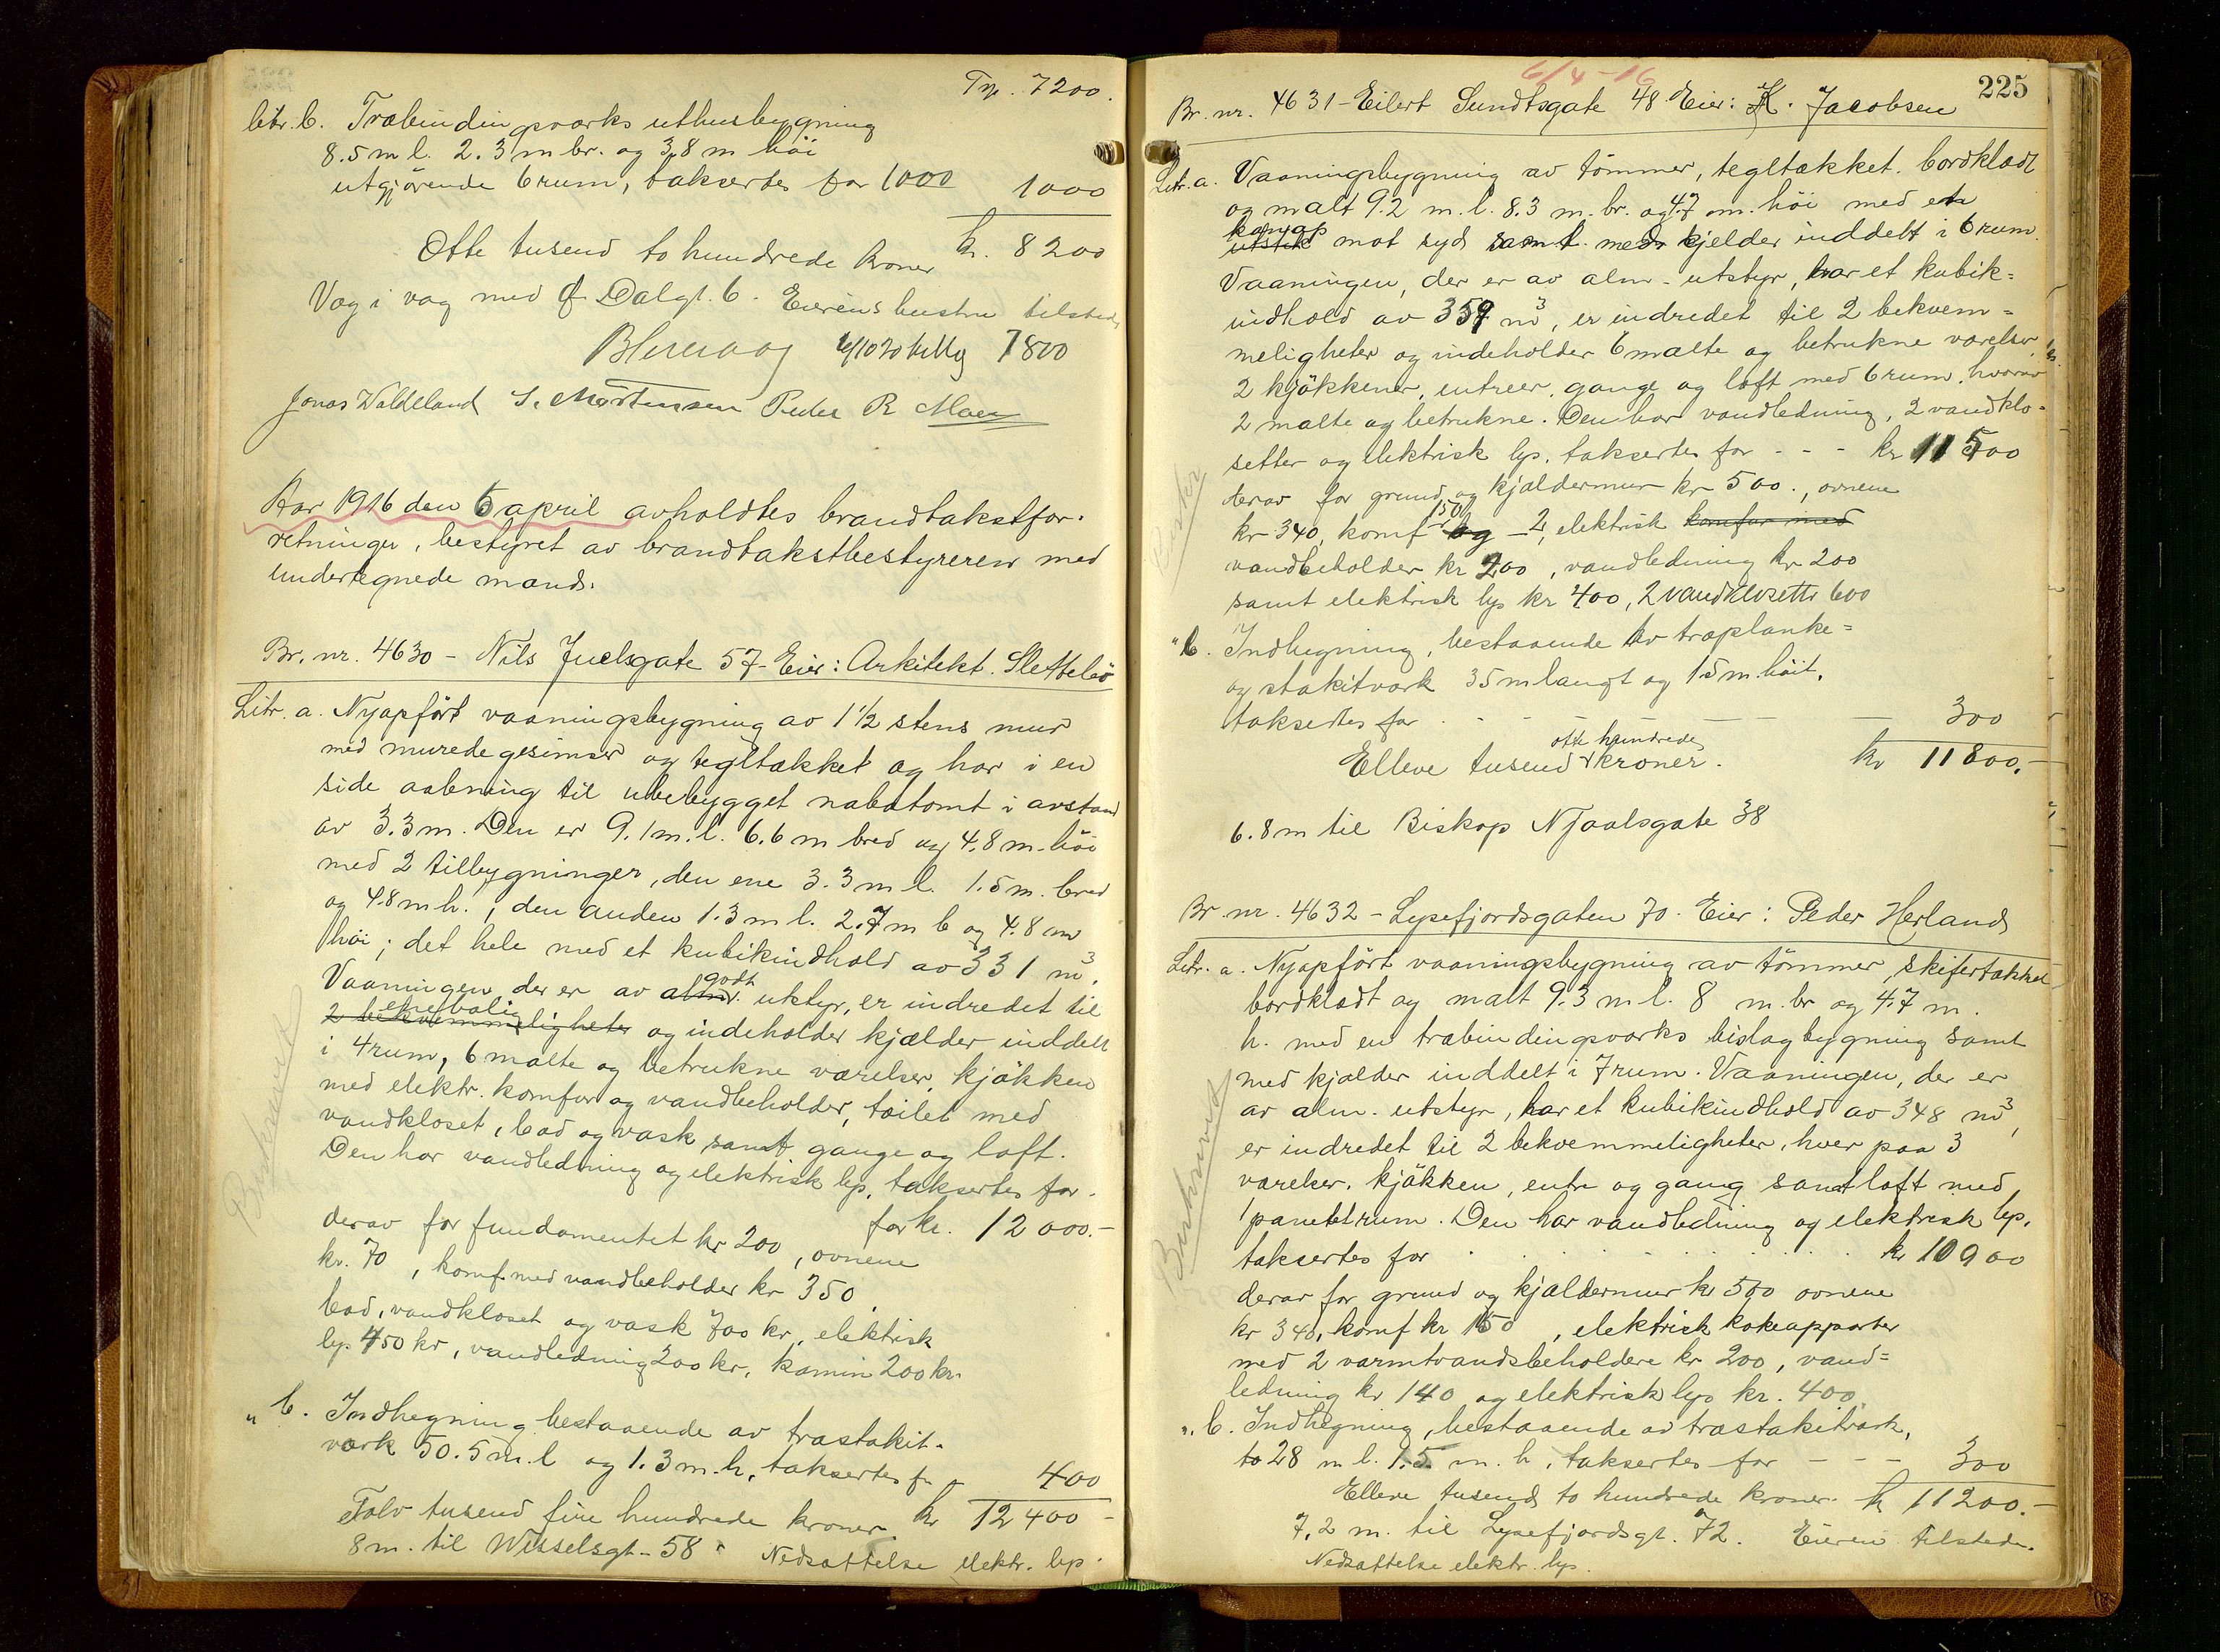 Trp. 7200.
litr. b. Træbindingsværks uthusbygning
8.5 m l. 2.3 m br. og 3,8 m höi
utgjörende 6 rum, taksertes for 1000 1000
Otte tusend to hundrede kroner kr. 8200
Væg i væg med Dalgt. 6. Eierens hustru tilstede
7800
Jonas Waldeland S. Mortensen Peder R. Moen
Aar 1916 den 6 april avholdtes brandtakstfor-
retninger, bestyret av brandtakstbestyreren med
undertegnede mænd.
Br. nr. 4630 - Nils Juelsgate 57 - Eier: Arkitekt Slettebö
Litr. a. Nyopfört vaaningsbygning av 1 1/2 stens mur
med murede gesimser og tegltækket og har i en
side aabning til ubebygget nabotomt i avstand
av 3.3 m. Den er 9.1 m. l. 6.6 m bred og 4.8 m. höi
med 2 tilbygninger, den ene 3.3 m l. 1.5 m. bred
og 4.8 m h., den anden 1.3 m l. 2.7 m b og 4.8 m
höi; det hele med et kubikindhold av 331 m³.
Vaaningen der er av alm. godt utstyr, er indredet til
2 bekvemmeligheter enebolig og indeholder kjælder inddelt
i 4 rum, 6 malte og betrukne værelser, kjökken
med elektr. komfur og vandbeholder, toilet med
vandkloset, bad og vask samt gange og loft.
Den har vandledning og elektrisk lys, taksertes for
for kr. 12 000.-
derav for fundamentet kr 200, ovnene
kr. 70, komf. med vandbeholder kr 350,
bad, vandkloset og vask 700 kr, elektrisk
lys 450 kr, vandledning 200 kr, kamin 200 kr.
" b. Indhegning bestaaende av træstakit-
værk 50.5 m. l og 1.3 m. h, taksertes fr - 400
Tolv tusend fire hundrede kroner. kr 12 400 -
8 m. til Wesselsgt. 58. Nedsættelse elektr. lys.
6/4-16
225
Br. nr. 4631 - Eilert Sundtsgate 48 Eier: K. Jacobsen
Litr. a. Vaaningsbygning av tömmer, tegltækket, bordklædt
og malt 9.2 m. l. 8.3 m. br. og 4.7 m. höi med et
utstik mot syd samt med kjelder inddelt i 6 rum.
Vaaningen, der er av alm. utstyr, har et kubik-
indhold av 359 m³, er indredet til 2 bekvem-
meligheter og indeholder 6 malte og betrukne værelser,
2 kjökkener, entreer, gange og loft med 6 rum, hvorav
2 malte og betrukne. Den har vandledning, 2 vandklo-
setter og elektrisk lys, taksertes for - - - kr 11 500
derav for grund og kjældermur kr 500., ovnene
kr 340, komf 150 og - 2, elektrisk komfur med
vandbeholder kr 200, vandledning kr 200
samt elektrisk lys kr 400, 2 vandklosetts 600
" b. Indhegning, bestaaende av træplanke-
og stakitværk 35 m langt og 1.5 m. höit,
taksertes for - - - 300
Elleve tusend otte hundrede kroner. kr 11 800.-
6.8 m til Biskop Njaalsgate 38
Br. nr. 4632 - Lysefjordsgaten 70. Eier: Peder Herland
Litr. a. Nyopfört vaaningsbygning av tömmer, skifertækket
bordklædt og malt 9.3 m l. 8 m. br og 4.7 m.
h. med en træbindingsværks bislagbygning samt
med kjælder inddelt i 7 rum. Vaaningen, der er
av alm. utstyr, har et kubikindhold av 348 m³,
er indredet til 2 bekvemmeligheter, hver paa 3
værelser, kjökken, entre og gang samt loft med
1 panelt rum. Den har vandledning og elektrisk lys,
taksertes for . . . . . . kr 10 900
derav for grund og kjældermur kr 500 ovnene
kr 340, komf kr 150, elektrisk kokeapparter
med 2 varmtvandsbeholdere kr 200, vand-
ledning kr 140 og elektrisk lys kr. 400,
" b. Indhegning, bestaaende av træstakitværk,
to 28 m l. 1.5 m. h, taksertes for - - - 300
Elleve tusend to hundrede kroner. kr 11 200.-
7,2 m. til Lysefjordsgt. 72. Eieren tilstede.
Nedsættelse elektr. lys.